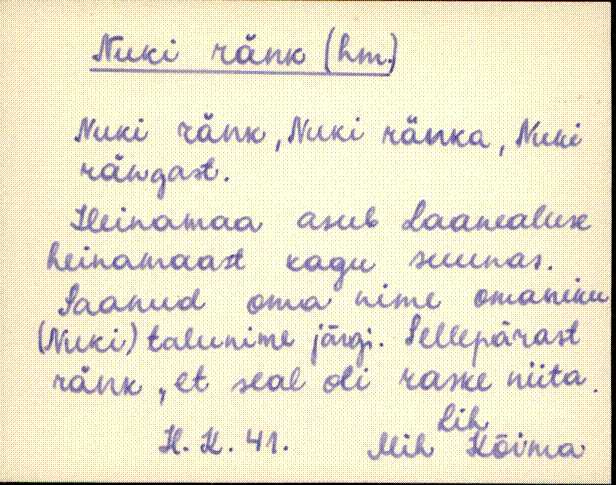 Nuki ränk (hm.)
Nuki ränk, Nuki ränka, Nuki
rängast.
Heinamaa asub Laanealuse
heinamaast kagu suunas.
Saanud oma nime omaniku
(Nuki) talunime järgi. Sellepärast
ränk, et seal oli raske niita.
Lih
H. K. 41. Mih Kõima